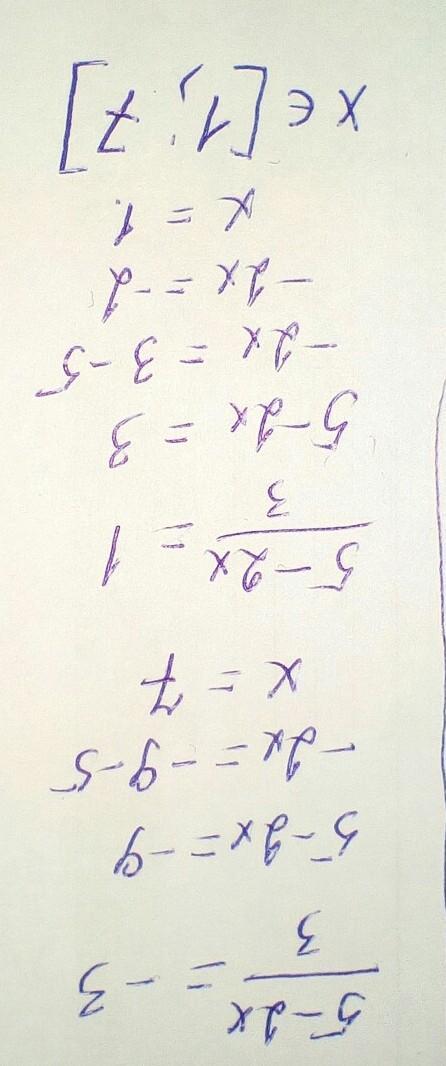 (5-2x)/3 = -3
5-2x = -9
-2x = -9-5
x = 7
(5-2x)/3 = 1
5-2x = 3
-2x = 3-5
-2x = -2
x = 1
x ∈ [1; 7]